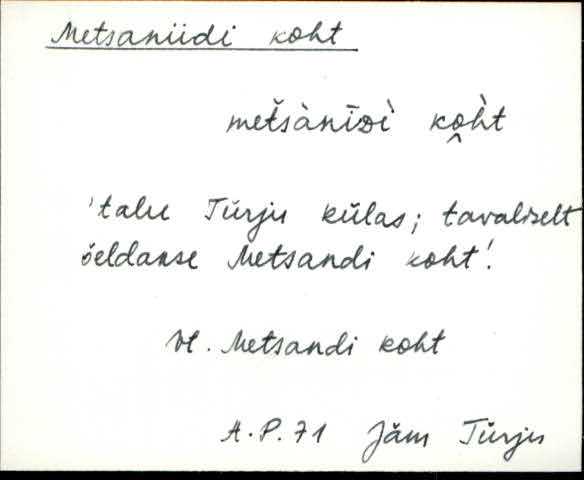 Metsaniidi koht
metšànīᴅì ko̭h̀t
'talu Türju külas; tavaliselt
öeldakse Metsandi koht'.
vt. Metsandi koht
A.P. 71 Jäm Türju